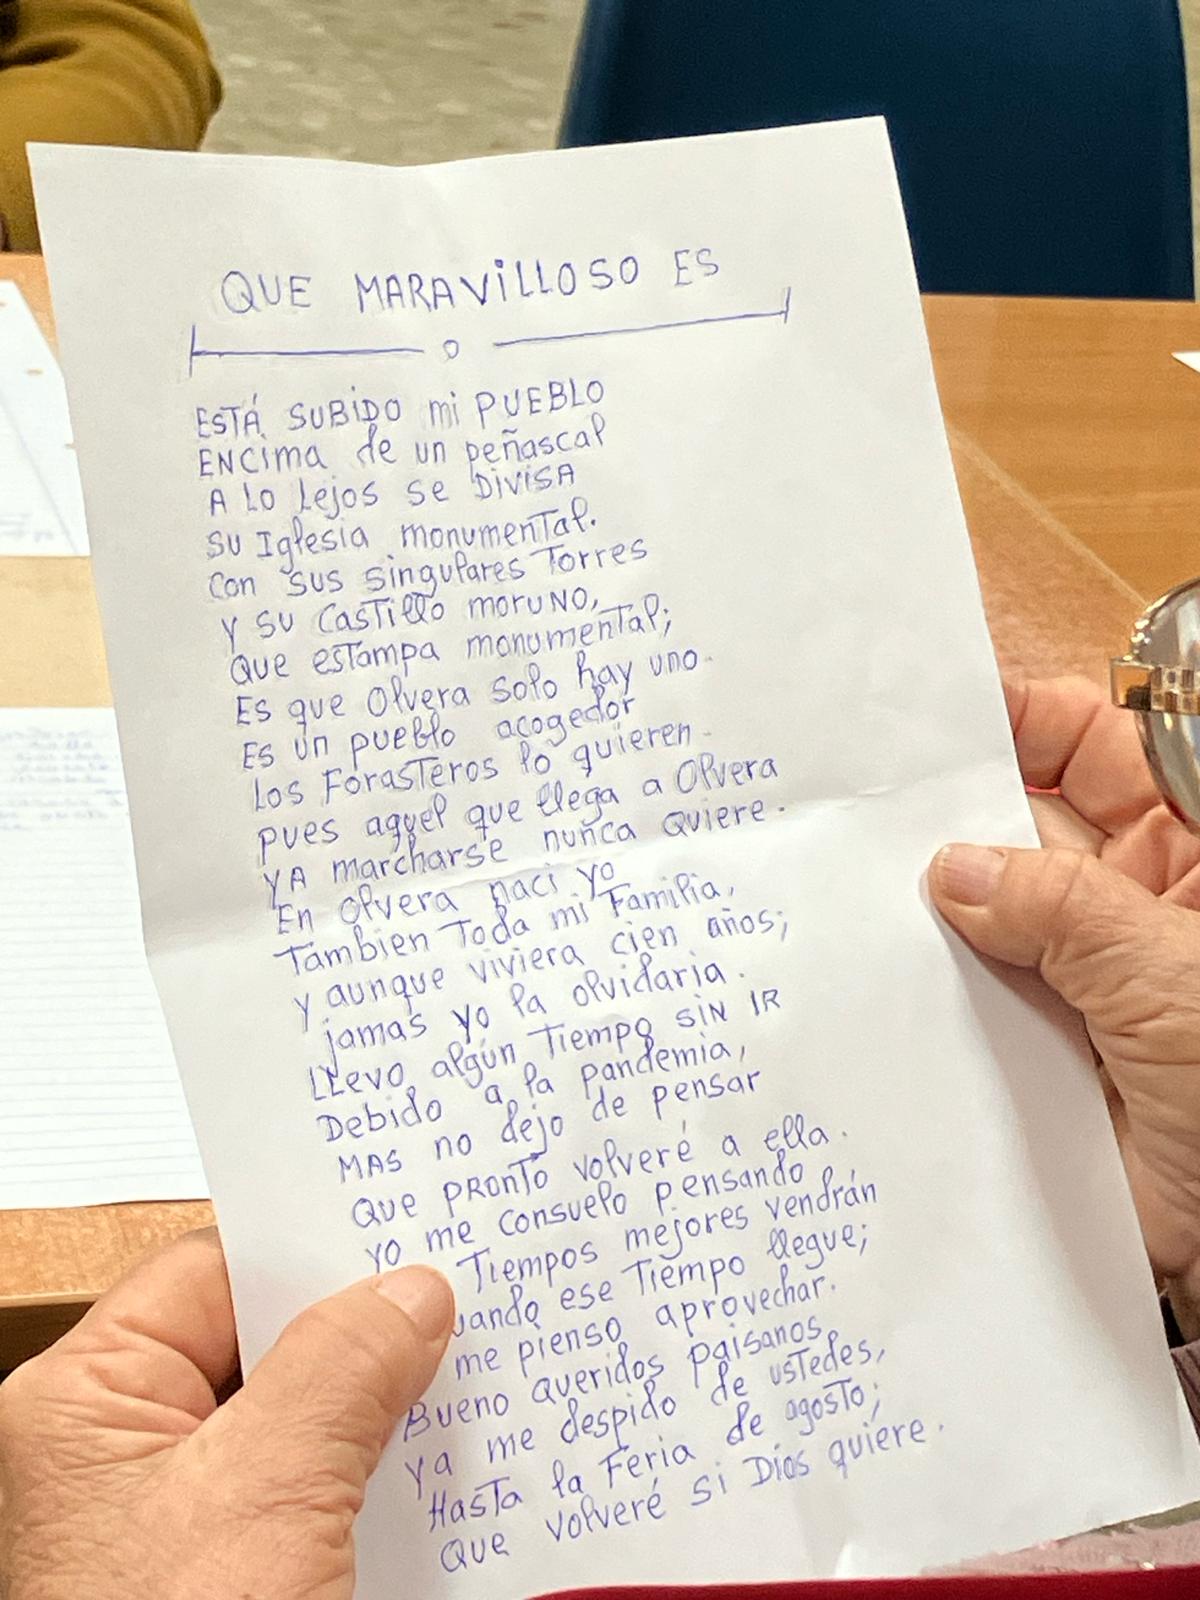 QUE MARAVILLOSO ES
ESTÁ SUBIDO mi PUEBLO
ENCima de un peñascal
A LO Lejos se DIVISA
su Iglesia monumental.
con sus singulares Torres
Y SU CASTillo moruno,
Que estampa monumental;
Es que Olvera solo hay uno.
Es un pueblo acogedor
Los Forasteros lo quieren.
pues aquel que llega a Olvera
YA marcharse nunca quiere.
En Olvera naci yo
Tambien Toda mi Familia,
y aunque viviera cien años;
jamas yo la olvidaria.
LLevo algún Tiempo SIN IR
Debido a la pandemia,
MAS no dejo de pensar
Que PRONTO volveré a ella.
yo me consuelo pensando
Tiempos mejores vendrán
uando ese Tiempo llegue;
me pienso aprovechar.
Bueno queridos paisanos,
ya me despido de ustedes,
Hasta la Feria de agosto;
Que volveré si Dios quiere.